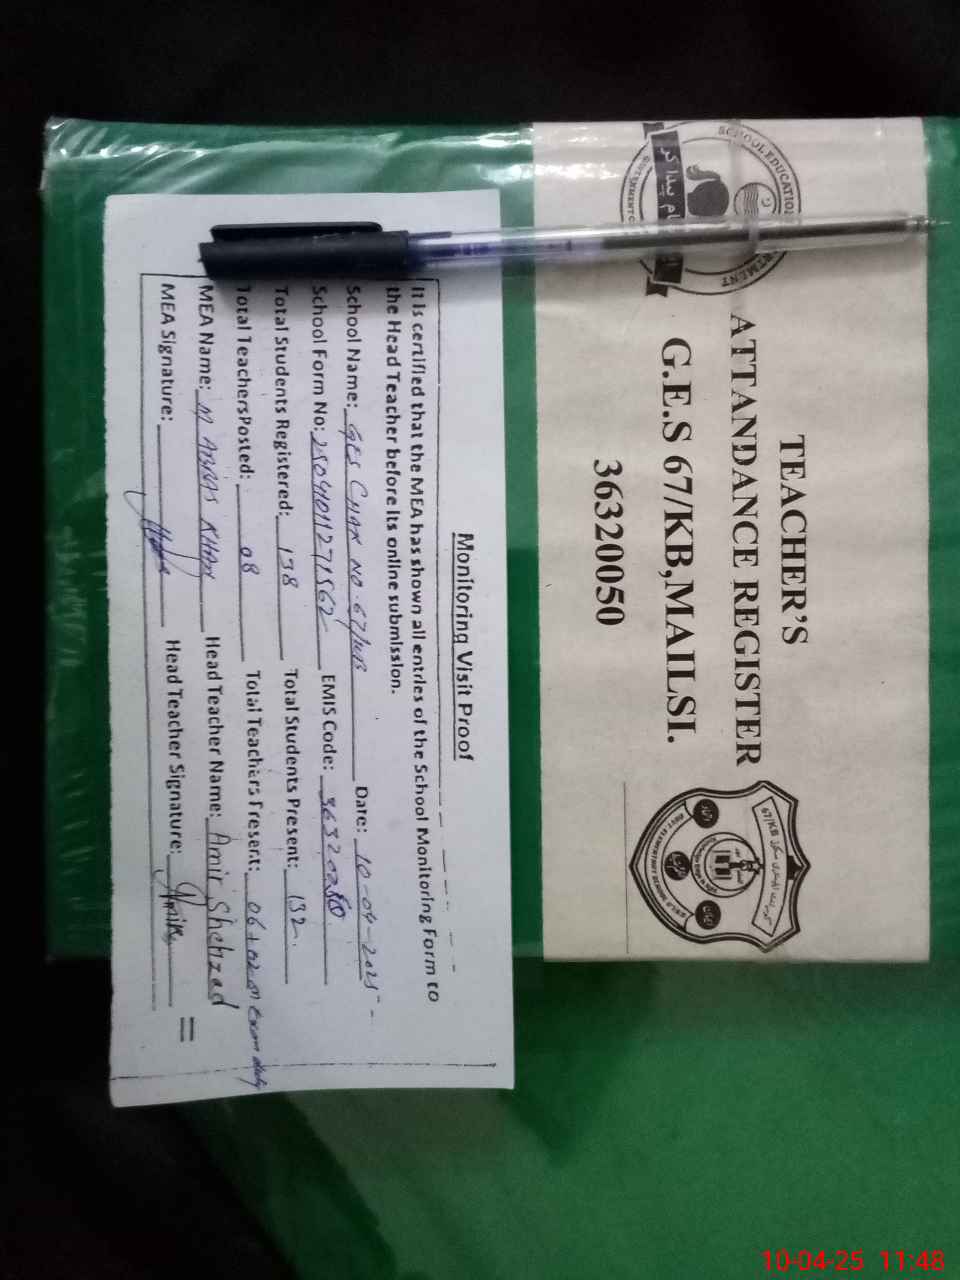 SCHOOL EDUCATION
GOVERNMENT
TEACHER'S
ATTANDANCE REGISTER
G.E.S 67/KB,MAILSI.
36320050
67/KB
Monitoring Visit Proof
It is certified that the MEA has shown all entries of the School Monitoring Form to
the Head Teacher before its online submission.
School Name: GES CHAK NO. 67/KB Date: 10-04-2025-
School Form No: EMIS Code:
Total Students Registered: 138 Total Students Present: 132
Total TeachersPosted: 08 Total Teachers Present: 06+02 on exam duty
MEA Name: M ABBAS KHAN Head Teacher Name: Amir Shehzad
MEA Signature: Head Teacher Signature:
10-04-25 11:48